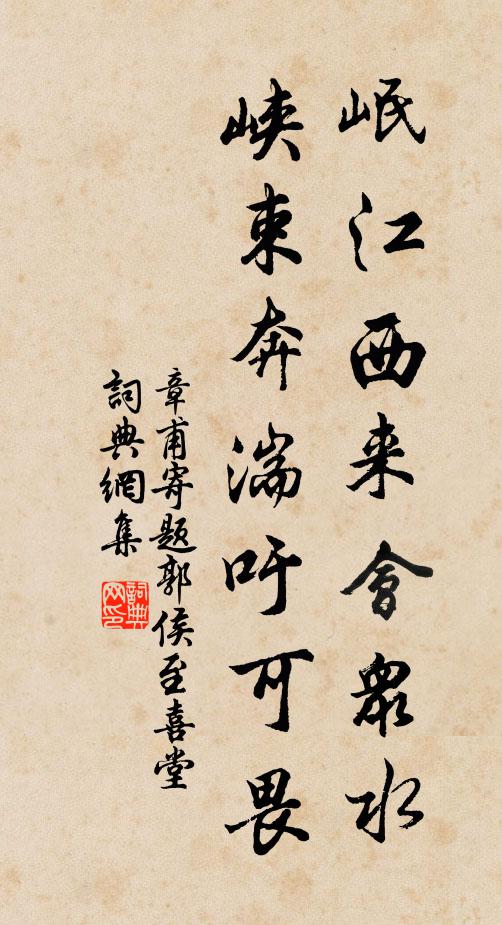 岷江西来會衆水
峽束奔湍吁可畏
章甫寄题郭侯至喜堂
詞典網集
詞典网印